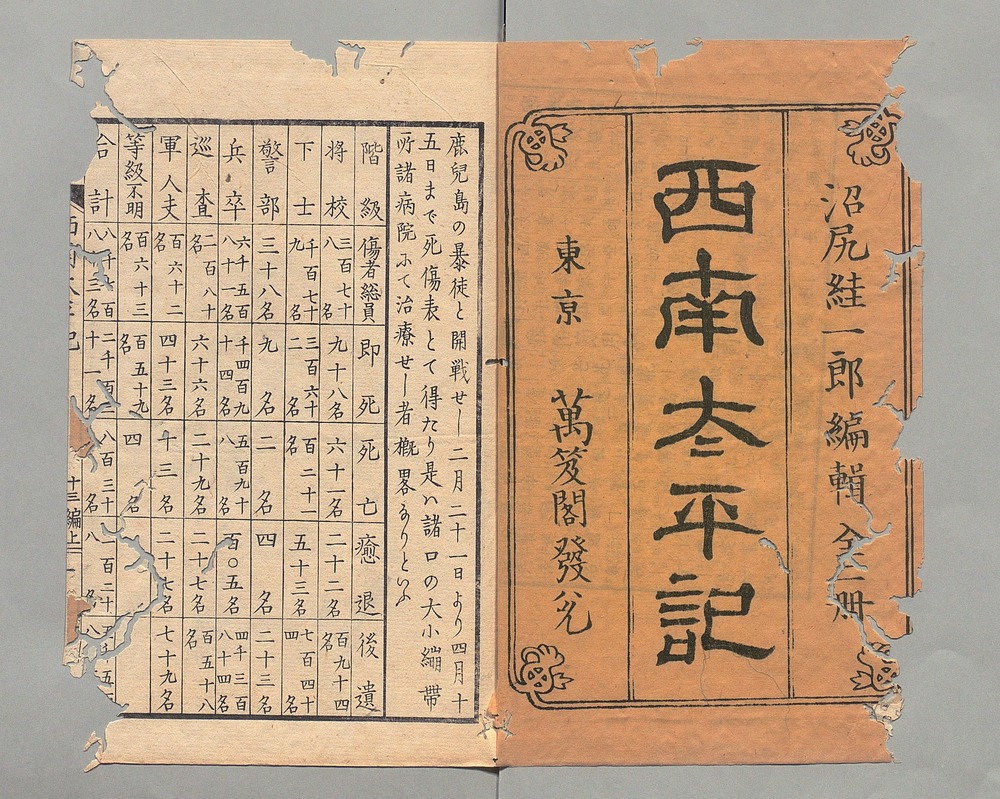 沼尻絓一郎編輯 全二册
西南太平記
東京 萬笈閣發兌
鹿兒島の暴徒と開戰せし二月二十一日より四月十
五日まで死傷表とて得たり是ハ諸口の大小繃帶
所諸病院にて治療せし者概畧なりといふ
階級 傷者総員 即死 死亡 癒退 後遺
將校 三百七十八名 九十八名 六十一名 二十二名 百九十四名
下士 千百七十九名 三百六十二名 百二十一名 五十三名 七百四十四名
警部 三十八名 九名 二名 四名 二十三名
兵卒 六千五百八十一名 千四百九十四名 五百九十八名 百〇五名 四千三百八十四名
巡査 二百八十名 六十六名 二十九名 二十七名 百五十八名
軍人夫 百六十二名 四十三名 十三名 二十七名 七十九名
等級不明 百六十三名 百五十九名 四名
合計 八千 百八十三名 二千百 十一名 八百三十 名 百二十八名
十三編上